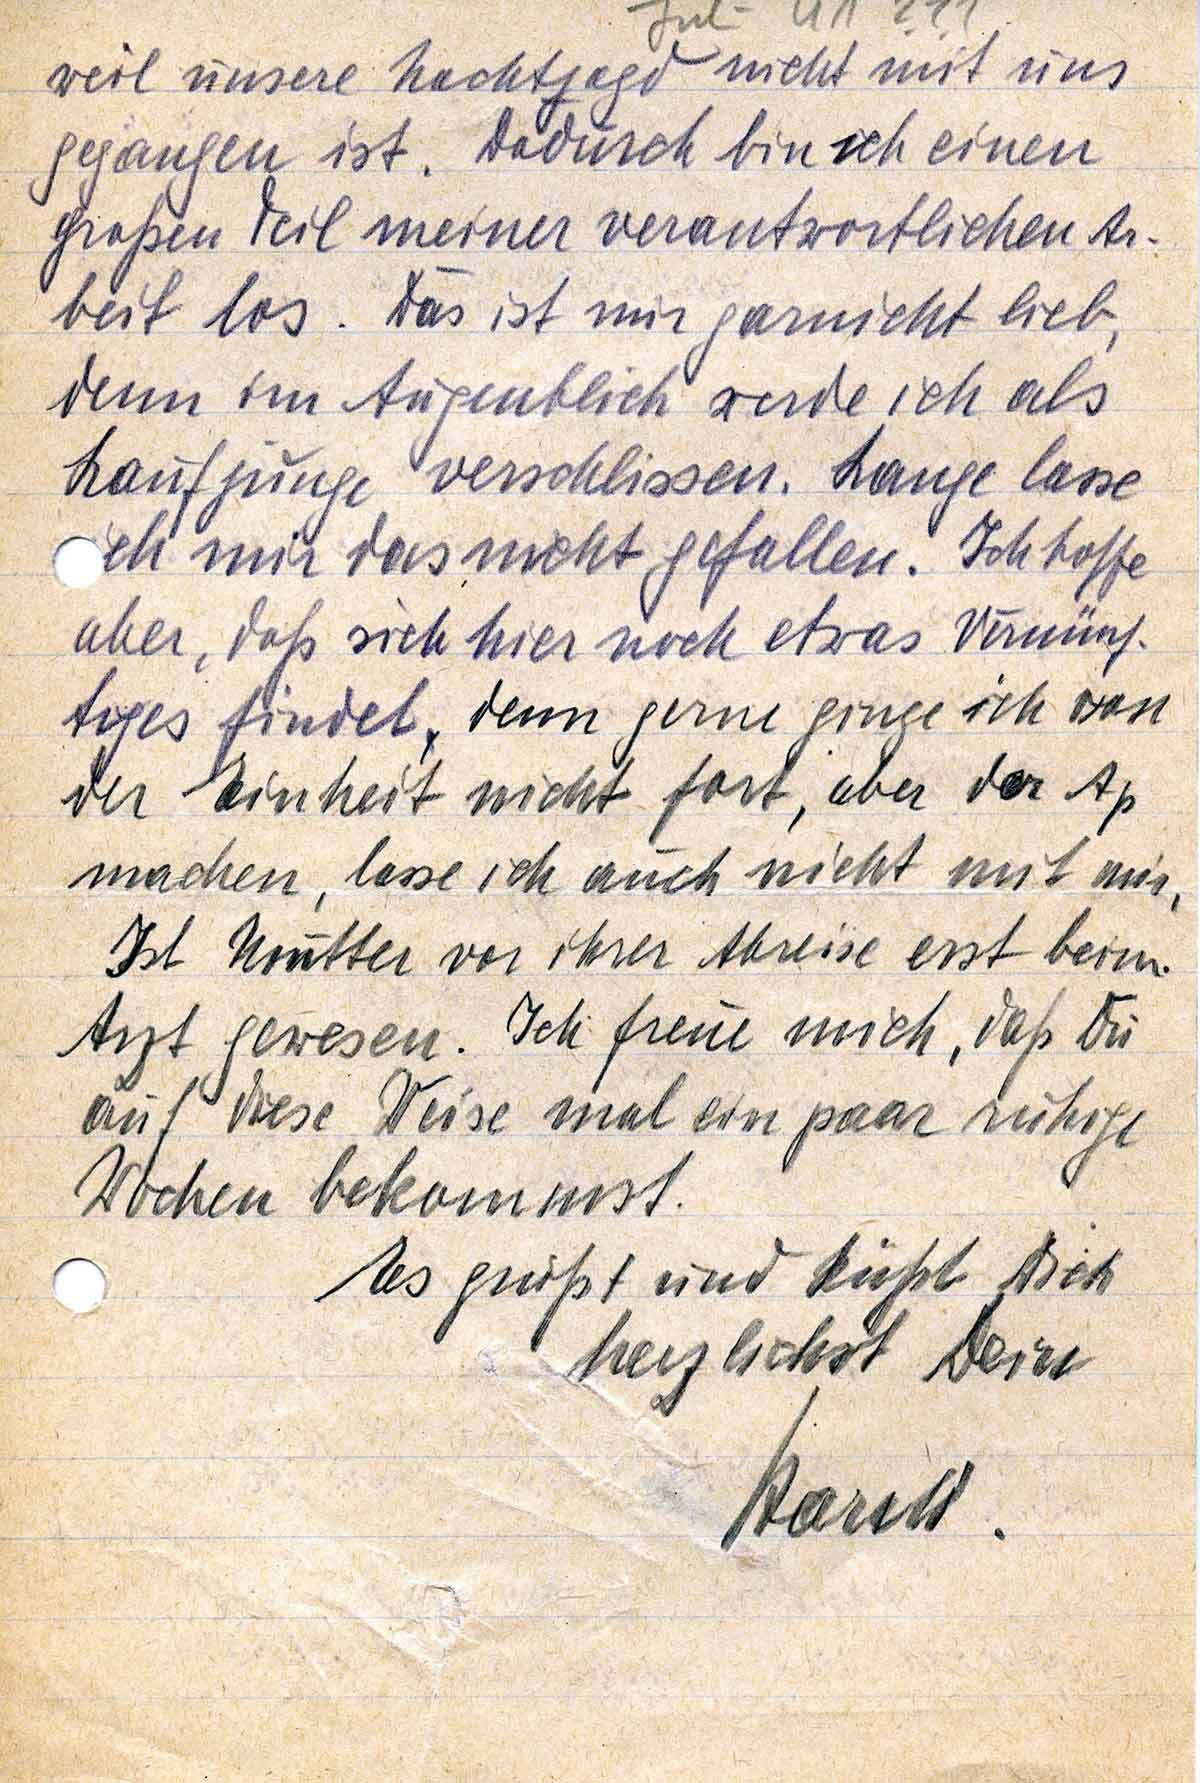 Juli 41 ???
weil unsere Nachtjagd nicht mit uns
gegangen ist. Dadurch bin ich einen
großen Teil meiner verantwortlichen Ar-
beit los. Das ist mir garnicht lieb,
denn im Augenblick werde ich als
Laufjunge verschlissen. Lange lasse
ich mir das nicht gefallen. Ich hoffe
aber, daß sich hier noch etwas Vernünf-
tiges findet, denn gerne ginge ich von
der Einheit nicht fort, aber der Ap
machen, lasse ich auch nicht mit mir.
Ist Mutter vor ihrer Abreise erst beim
Arzt gewesen. Ich freue mich, daß Du
auf diese Weise mal ein paar ruhige
Wochen bekommst.
Es grüßt und küßt Dich
herzlichst Dein